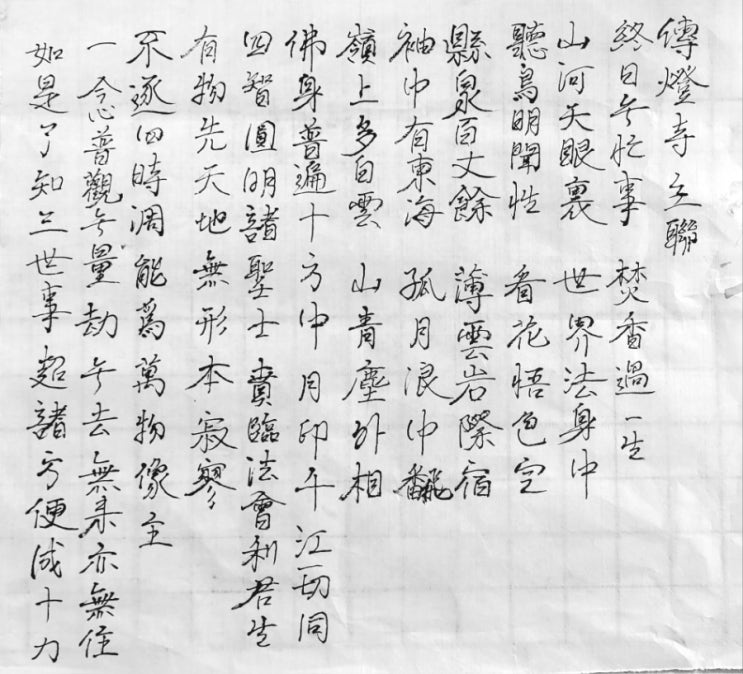 傳燈寺主聯
終日無忙事 焚香過一生
山河天眼裏 世界法身中
聽鳥明聞性 看花悟色空
縣泉百丈餘 薄雲岩際宿
袖中有東海 孤月浪中翻
嶺上多白雲 山青塵外相
佛身普遍十方中 月印千江一切同
四智圓明諸聖士 賁臨法會利君生
有物先天地 無形本寂寥
不逐四時凋 能爲萬物像主
一念普觀無量劫 無去無来亦無住
如是了知三世事 超諸方便成十力